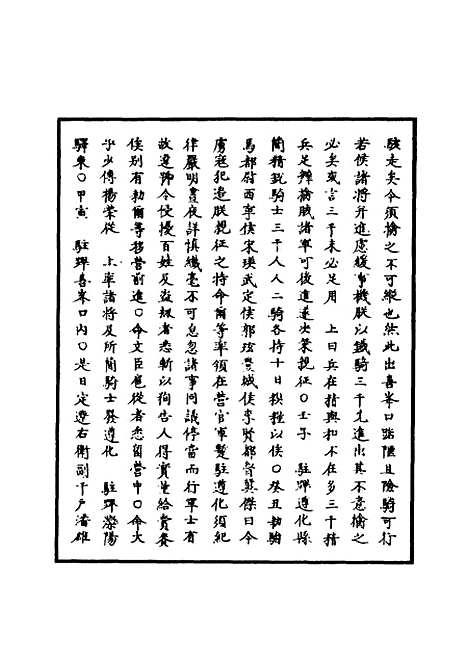 駭走矣今須擒之不可縱也然此出喜峯口路隘且險騎可行
若候諸將并進慮緩事機朕以鐵騎三千先進出其不意擒之
必矣或言三千未必足用　上曰兵在精與和不在多三千精
兵足辦擒賊諸軍可後進遂決策親征○壬子　駐蹕遵化縣
簡精銳騎士三千人人二騎各持十日糗糧以俟○癸丑勑駙
馬都尉西寧侯宋瑛武定侯郭玹豐城侯李賢都督冀傑曰今
虜寇犯邊朕親征之特命爾等率領在營官軍暫駐遵化須紀
律嚴明晝夜謹慎纖毫不可怠忽諸事同議停當而行軍士有
故違號令侵擾百姓及盜刼者悉斬以徇告人得實量給賞賚
俟别有勑爾等移營前進○命文臣扈從者悉留營中○命大
少傅楊榮從　上率諸將及所簡騎士發遵化　駐蹕灤陽
驛東○甲寅　駐蹕喜峯口内○是日定遼右衛副千戶潘雄